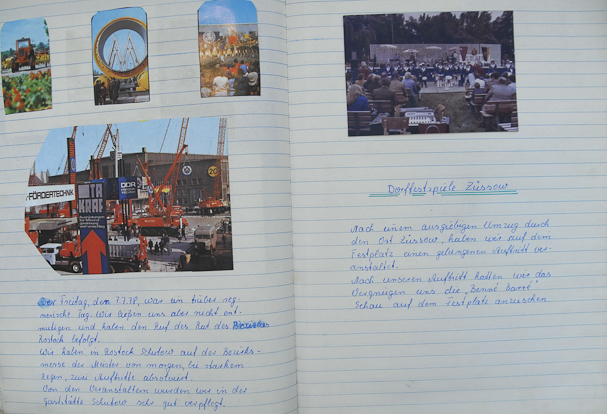 -FÖRDERTECHNIK
TATA
TRAK
DDR
20
Der Freitag, den 7.7.78, war ein trüber reg-
nerischer Tag. Wir ließen uns aber nicht ent-
mutigen und haben den Ruf des Rat des Bezirkes
Rostock befolgt.
Wir haben in Rostock Schutow auf der Bezirks-
messe der Meister von morgen, bei starkem
Regen, zwei Auftritte absolviert.
Von den Veranstaltern wurden wir in der
Gaststätte Schutow sehr gut verpflegt.
Dorffestspiele Züssow
Nach einem ausgiebigen Umzug durch
den Ort Züssow, haben wir auf dem
Festplatz einen gelungenen Auftritt ver-
anstaltet.
Nach unseren Auftritt hatten wir das
Vergnügen uns die „Benné
Schau auf dem Festplatz anzusehen